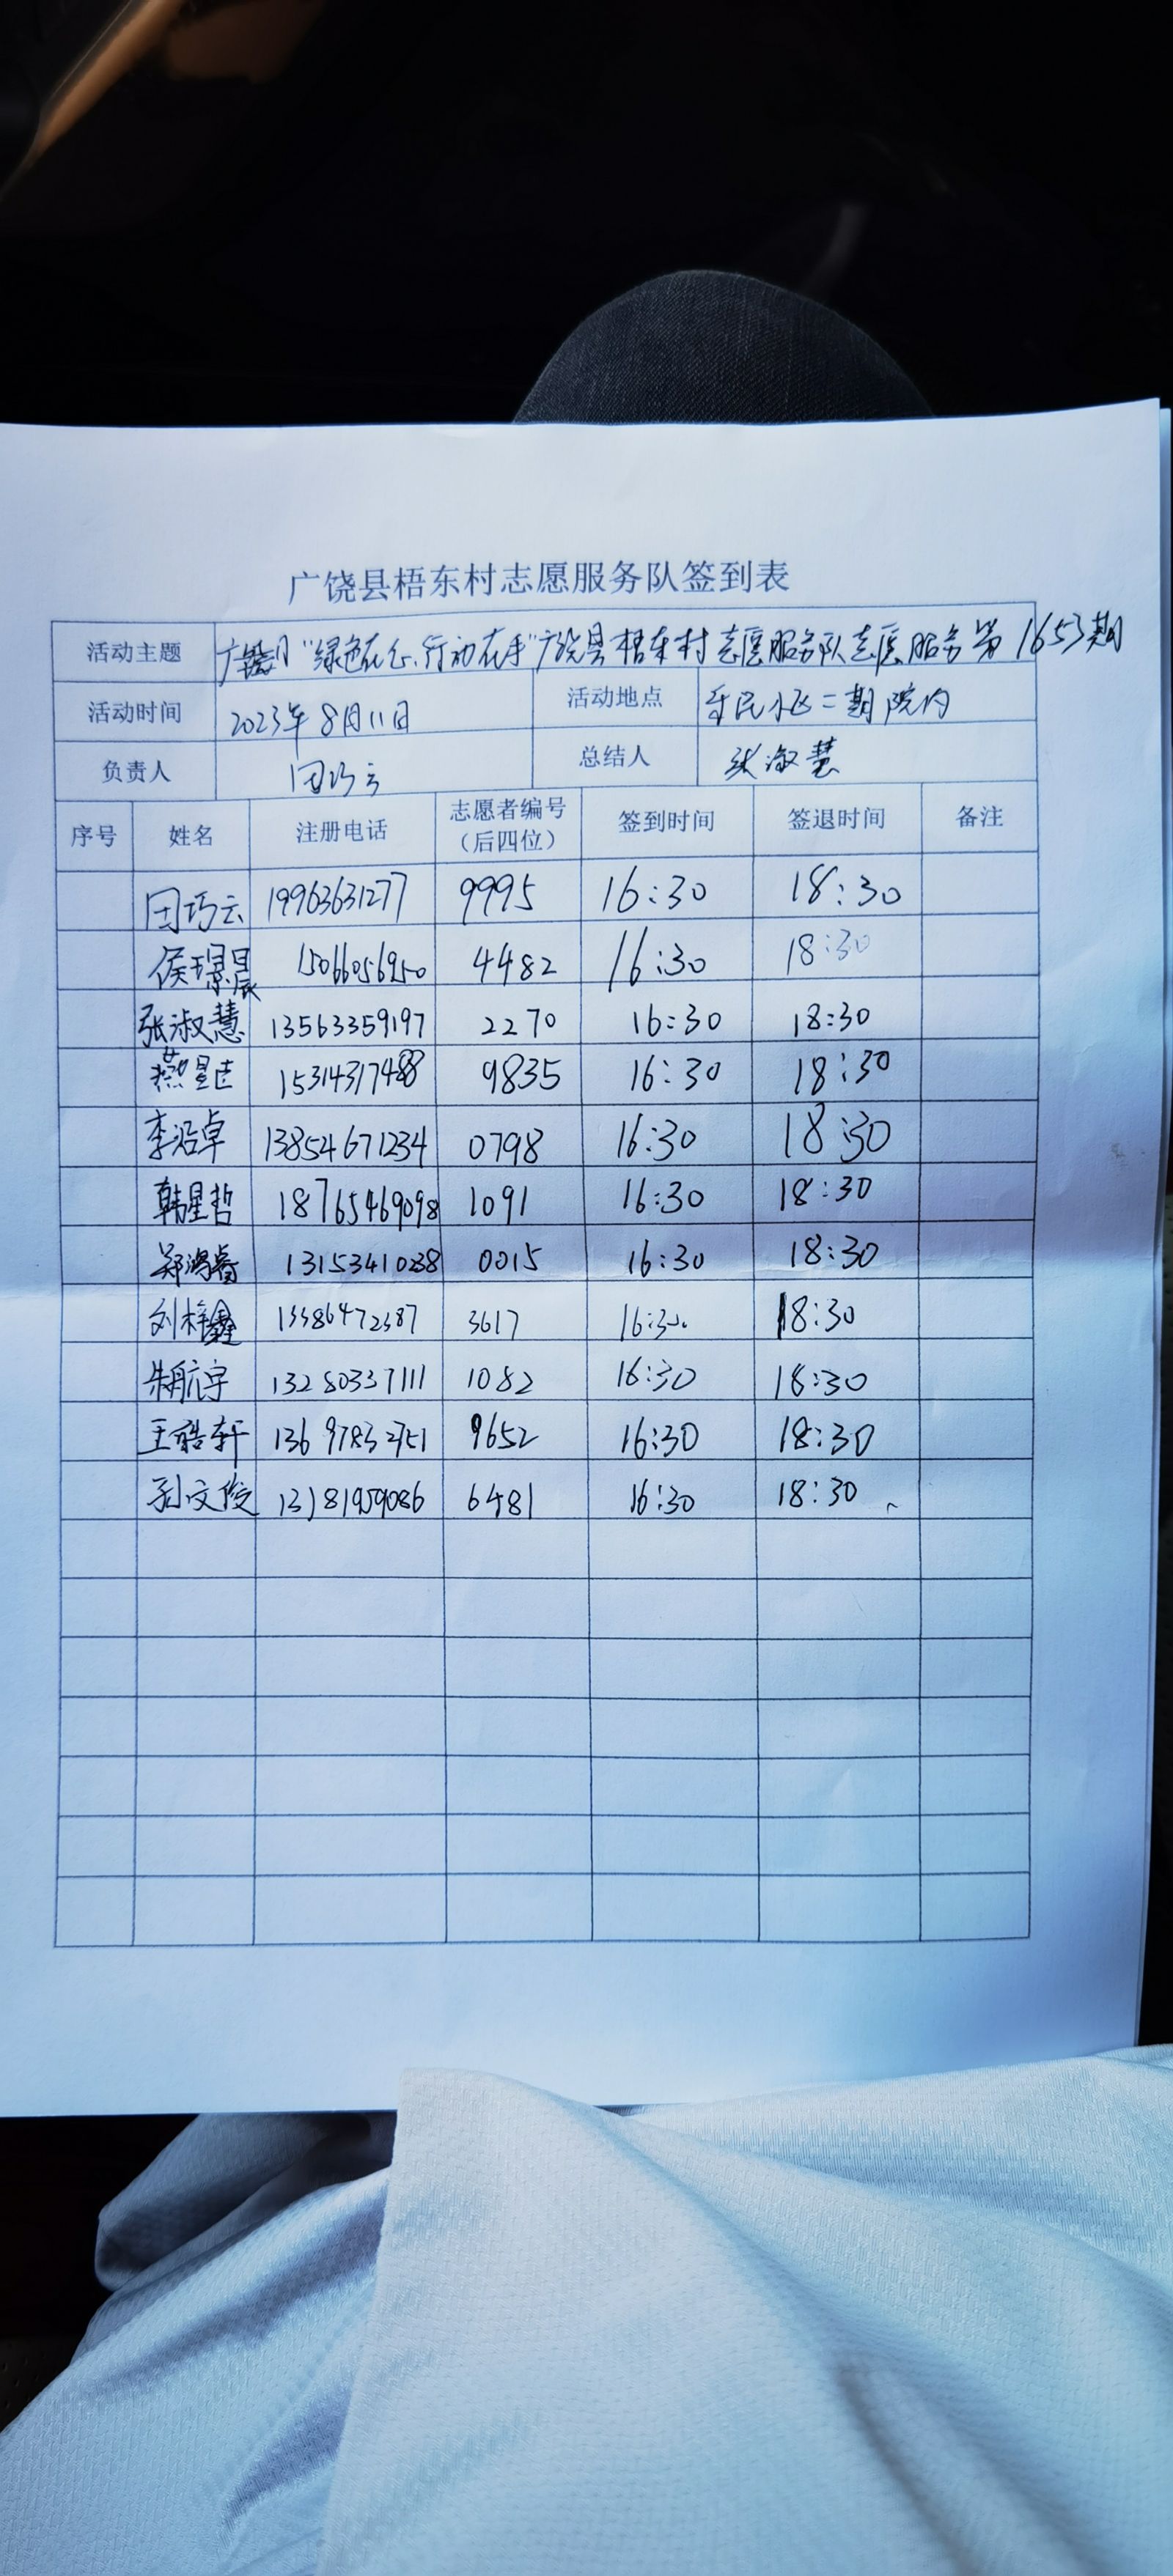 广饶县梧东村志愿服务队签到表
活动主题 "绿色在心,行动在手"广饶县梧东村志愿服务队志愿服务第1653期
活动时间 2023年8月11日 活动地点 小区二期院内
负责人 总结人 张淑慧
序号 姓名 注册电话 志愿者编号(后四位) 签到时间 签退时间 备注
巧云 19963631277 9995 16:30 18:30
侯璟晨 15066056950 4482 16:30 18:30
张淑慧 13563359197 2270 16:30 18:30
燕 15314317488 9835 16:30 18:30
李沿卓 13854671234 0798 16:30 18:30
韩星哲 18765469098 1091 16:30 18:30
郑鸿睿 13153410238 0015 16:30 18:30
刘梓鑫 13386472387 3617 16:30 18:30
朱航宇 13280337111 1082 16:30 18:30
王皓轩 13697832751 9652 16:30 18:30
孙文俊 13181959086 6481 16:30 18:30